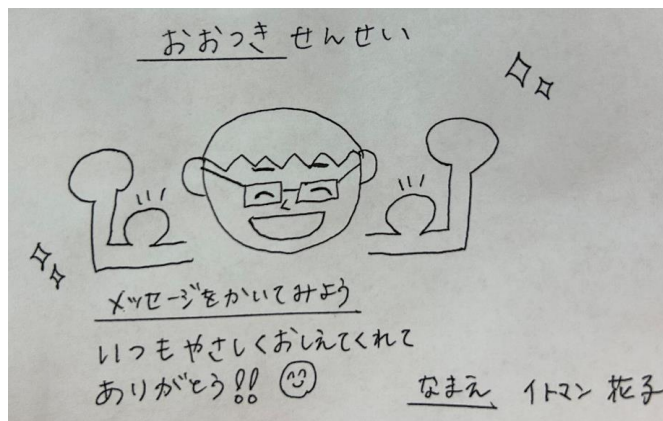 おおつき せんせい
メッセージをかいてみよう
いつもやさしくおしえてくれて
ありがとう!!
なまえ イトマン 花子